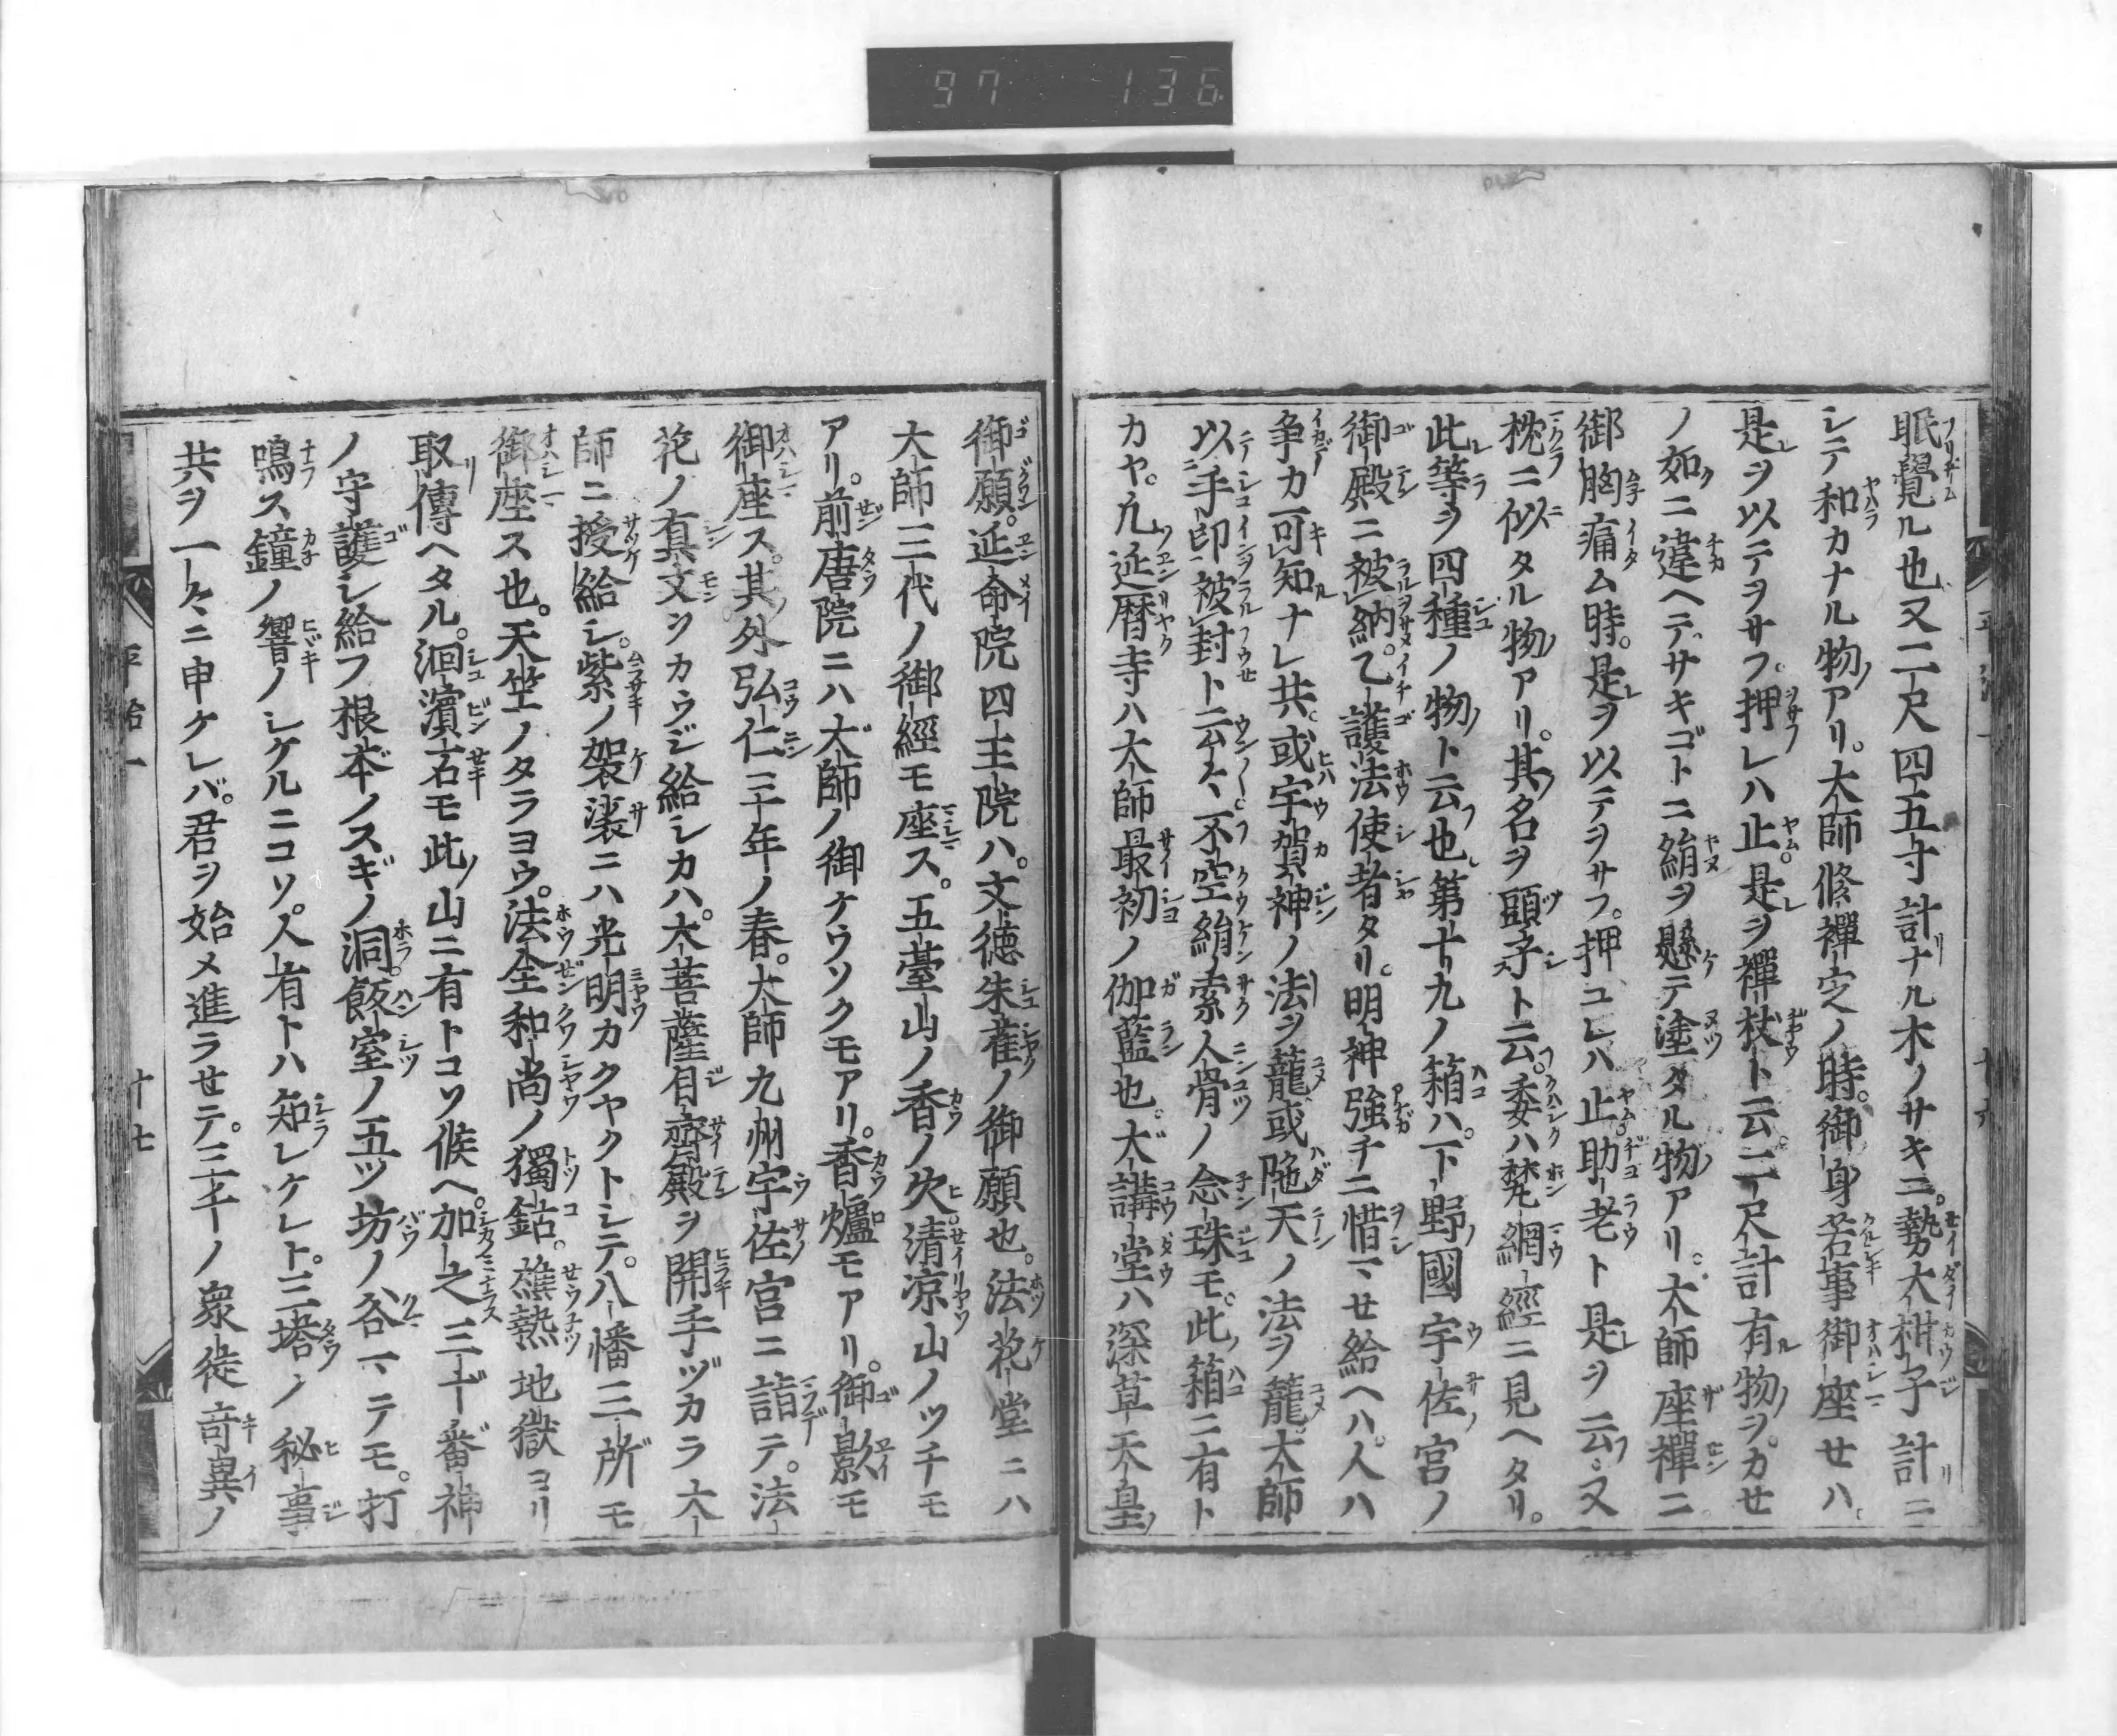 97 136
眠覺ル也又二尺四五寸計ナル木ノサキニ。勢大柑子計ニ
シテ和カナル物アリ。大師修禪定ノ時。御身苦事御座せハ。
是ヲ以テヲサフ。押レハ止是ヲ禪杖ト云。二尺計有物ヲ。カセ
ノ如ニ違ヘテ。サキゴトニ絹ヲ懸テ塗タル物アリ。大師座禪ニ
御胸痛ム時。是ヲ以テヲサフ。押コレハ止助老ト是ヲ云。又
枕ニ似タル物アリ。其名ヲ頭子ト云。委ハ梵網經ニ見ヘタリ。
此等ヲ四種ノ物ト云也。第十九ノ箱ハ。下野國宇佐宮ノ
御殿ニ被納。乙護法使者タリ。明神強チニ惜マせ給ヘハ。人ハ
争カ可知ナレ共。或宇賀神ノ法ヲ籠或陁天ノ法ヲ籠。大師
以手印被封ト云々。不空絹索人骨ノ念珠モ。此箱ニ有ト
カヤ。凡延暦寺ハ大師最初ノ伽藍也。大講堂ハ深草天皇ノ
御願。延命院四王院ハ。文徳朱雀ノ御願也。法花堂ニハ
大師三代ノ御經モ座ス。五臺山ノ香ノ火。清凉山ノツチモ
アリ。前唐院ニハ大師ノ御ケウソクモアリ。香爐モアリ。御影モ
御座ス。其外弘仁三十年ノ春。大師九州宇佐宮ニ詣テ。法
花ノ真文シカウジ給シカハ。大菩薩自齋殿ヲ開手ヅカラ大
師ニ授給シ。紫ノ袈裟ニハ光明カクヤクトシテ。八幡三所モ
御座ス也。天竺ノタラヨウ。法全和尚ノ獨鈷。蕉熱地獄ヨリ
取傳ヘタル。洄濱石モ此山ニ有トコソ候ヘ。加之三十番神
ノ守護シ給フ根本ノスギノ洞。飯室ノ五ツ坊ノ谷マテモ。打
鳴ス鐘ノ響ノシケルニコソ。人有トハ知レケレト。三塔ノ秘事
共ヲ一々ニ申ケレバ。君ヲ始メ進ラせテ。三千ノ衆徒奇異ノ
十七